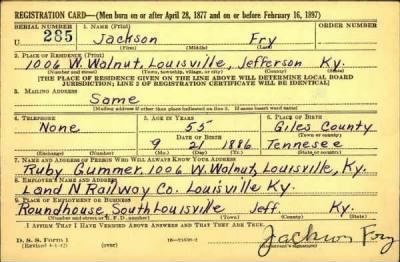 REGISTRATION CARD—(Men born on or after April 28, 1877 and on or before February 16, 1897)
SERIAL NUMBER 1. NAME (Print)
285 Jackson Fry
(First) (Middle) (Last)
2. PLACE OF RESIDENCE (Print)
1006 W. Walnut, Louisville, Jefferson Ky.
(Number and street) (Town, township, village, or city) (County) (State)
[THE PLACE OF RESIDENCE GIVEN ON THE LINE ABOVE WILL DETERMINE LOCAL BOARD
JURISDICTION; LINE 2 OF REGISTRATION CERTIFICATE WILL BE IDENTICAL]
3. MAILING ADDRESS
Same
(Mailing address if other than place indicated on line 2. If same insert word same)
4. TELEPHONE 5. AGE IN YEARS 6. PLACE OF BIRTH
None 55 Giles County
DATE OF BIRTH (Town or county)
9 21 1886 Tennesee
(Exchange) (Number) (Mo.) (Day) (Yr.) (State or country)
7. NAME AND ADDRESS OF PERSON WHO WILL ALWAYS KNOW YOUR ADDRESS
Ruby Gummer, 1006 W. Walnut, Louisville, Ky.
8. EMPLOYER'S NAME AND ADDRESS
L and N Railway Co. Louisville Ky.
9. PLACE OF EMPLOYMENT OR BUSINESS
Roundhouse, South Louisville Jeff. Ky.
(Number and street or R. F. D. number) (Town) (County) (State)
I AFFIRM THAT I HAVE VERIFIED ABOVE ANSWERS AND THAT THEY ARE TRUE.
D. S. S. Form 1
(Revised 4-1-42) (over)
Jackson Fry